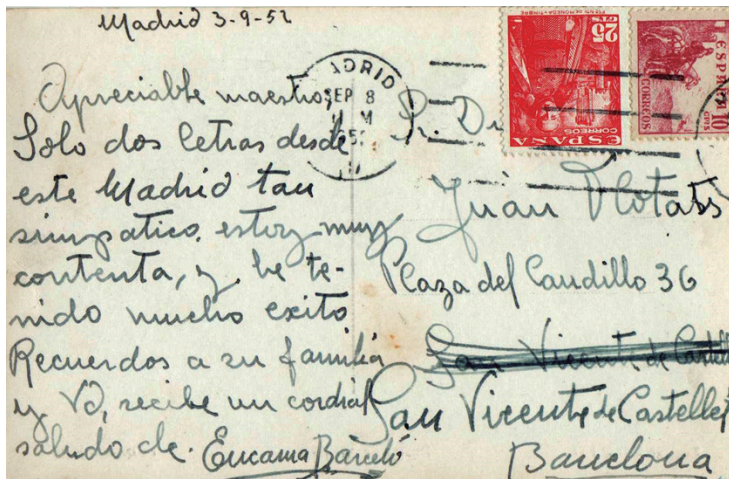 Madrid 3-9-52
Apreciable maestro,
Solo dos letras desde
este Madrid tan
simpatico, estoy muy
contenta, y he te-
nido mucho exito
Recuerdos a su familia
y Vd, recibe un cordial
saludo de. Encarna Barceló
MADRID
SEP 8
25
CTS
CORREOS
ESPAÑA
ESPAÑA
CORREOS
10
CTS
Sr. D
Juan Flotats
Plaza del Caudillo 36
San Vicente de Castell
San Vicente de Castellet
Barcelona